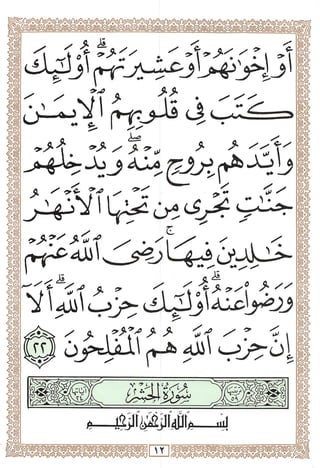 أَوْ إِخْوَٰنَهُمْ أَوْ عَشِيرَتَهُمْ ۚ أُو۟لَـٰٓئِكَ
كَتَبَ فِى قُلُوبِهِمُ ٱلْإِيمَـٰنَ
وَأَيَّدَهُم بِرُوحٍ مِّنْهُ ۖ وَيُدْخِلُهُمْ
جَنَّـٰتٍ تَجْرِى مِن تَحْتِهَا ٱلْأَنْهَـٰرُ
خَـٰلِدِينَ فِيهَا ۚ رَضِىَ ٱللَّهُ عَنْهُمْ
وَرَضُوا۟ عَنْهُ ۚ أُو۟لَـٰٓئِكَ حِزْبُ ٱللَّهِ ۚ أَلَآ
إِنَّ حِزْبَ ٱللَّهِ هُمُ ٱلْمُفْلِحُونَ ٢٢
سُورَةُ الحَشْرِ
بِسْمِ ٱللَّهِ ٱلرَّحْمَـٰنِ ٱلرَّحِيمِ
١٢